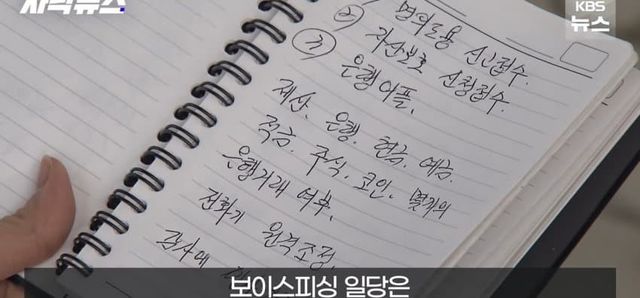 자막뉴스
KBS
뉴스
명의도용 신고접수.
자산보호 신청접수.
은행이름.
재산. 은행. 현금. 예금.
적금. 주식. 코인. 몇개의
은행거래 여부.
전화기 원격조정.
검사에
보이스피싱 일당은